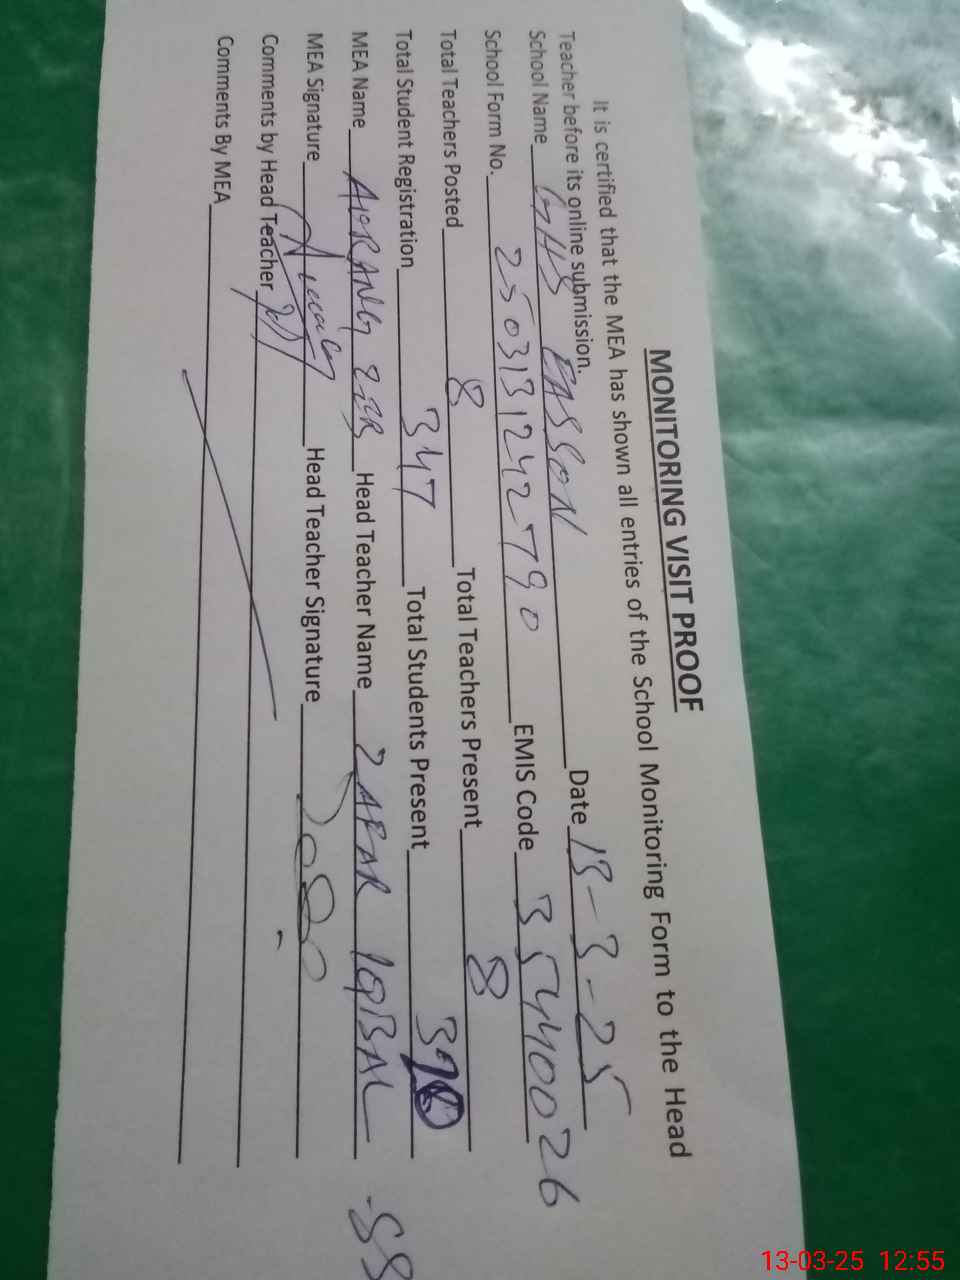 MONITORING VISIT PROOF
It is certified that the MEA has shown all entries of the School Monitoring Form to the Head
Teacher before its online submission.
School Name GHS BASSON Date 13-3-25
School Form No. 2503131242790 EMIS Code 35440026
Total Teachers Posted 8 Total Teachers Present 8
Total Student Registration 347 Total Students Present
MEA Name Head Teacher Name ZAFAR IQBAL
MEA Signature Head Teacher Signature
Comments by Head Teacher
Comments By MEA
13-03-25 12:55